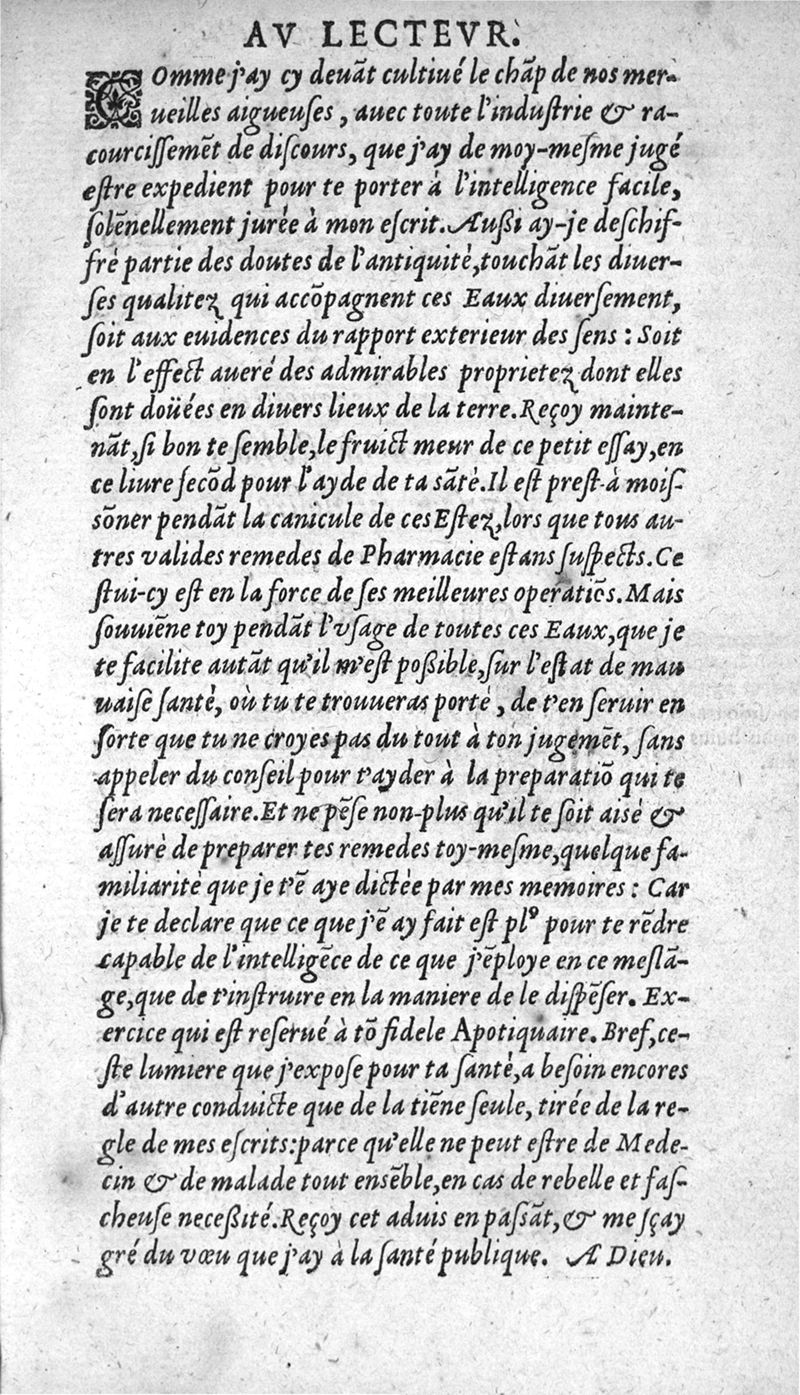 AV LECTEVR.
COmme j'ay cy deuãt cultiué le chãp de nos mer-
ueilles aigueuſes, auec toute l'induſtrie & ra-
courciſſemẽt de diſcours, que j'ay de moy-meſme jugé
eſtre expedient pour te porter à l'intelligence facile,
ſolẽnellement jurée à mon eſcrit. Außi ay-je deſchif-
fré partie des doutes de l'antiquité, touchãt les diuer-
ſes qualitez qui accõpagnent ces Eaux diuerſement,
ſoit aux euidences du rapport exterieur des ſens: Soit
en l'effect aueré des admirables proprietez dont elles
ſont doüées en diuers lieux de la terre. Reçoy mainte-
nãt, ſi bon te ſemble, le fruict meur de ce petit eſſay, en
ce liure ſecõd pour l'ayde de ta sãté. Il eſt preſt-à moiſ-
sõner pendãt la canicule de ces Eſtez, lors que tous au-
tres valides remedes de Pharmacie eſtans ſuſpects. Ce
ſtui-cy eſt en la force de ſes meilleures operatiõs. Mais
ſouuiẽne toy pendãt l'vſage de toutes ces Eaux, que je
te facilite autãt qu'il m'eſt poßible, ſur l'eſtat de mau
uaiſe ſanté, où tu te trouueras porté, de t'en ſeruir en
ſorte que tu ne croyes pas du tout à ton jugemẽt, ſans
appeler du conſeil pour t'ayder à la preparatiõ qui te
ſera neceſſaire. Et ne pẽſe non-plus qu'il te ſoit aisé &
aſſuré de preparer tes remedes toy-meſme, quelque fa-
miliarité que je t'ẽ aye dictée par mes memoires: Car
je te declare que ce que j'ẽ ay fait eſt plꝰ pour te rẽdre
capable de l'intelligẽce de ce que j'ẽploye en ce meſlã-
ge, que de t'inſtruire en la maniere de le diſpẽſer. Ex-
ercice qui eſt reſerué à tõ fidele Apotiquaire. Bref, ce-
ſte lumiere que j'expoſe pour ta ſanté, a beſoin encores
d'autre conduicte que de la tiẽne ſeule, tirée de la re-
gle de mes eſcrits: parce qu'elle ne peut eſtre de Mede-
cin & de malade tout ensẽble, en cas de rebelle et faſ-
cheuſe neceßité. Reçoy cet aduis en paſsãt, & me ſçay
gré du vœu que j'ay à la ſanté publique. A Dieu.